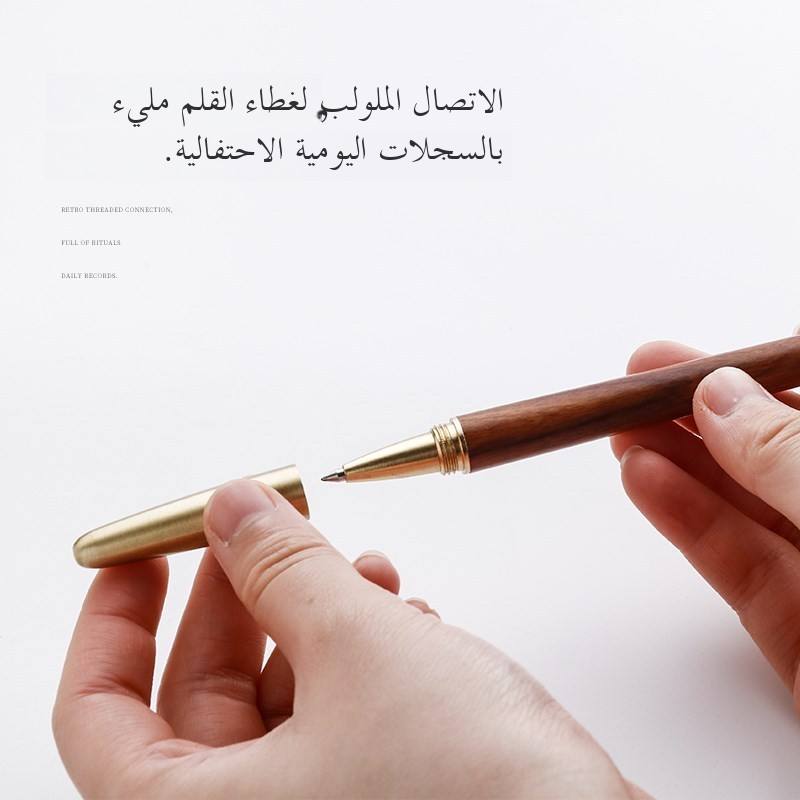 الاتصال الملولب لغطاء القلم مليء
بالسجلات اليومية الاحتفالية.
RETRO THREADED CONNECTION,
FULL OF RITUALS
DAILY RECORDS.